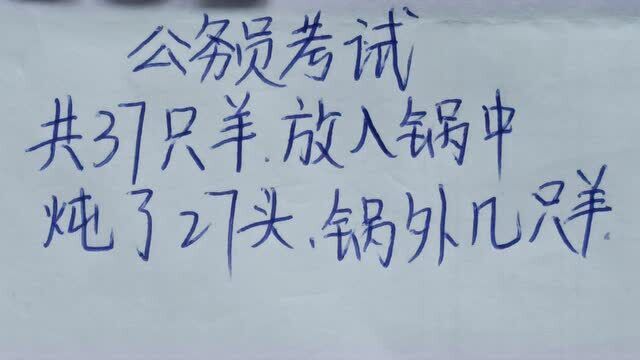 公务员考试
共37只羊.放入锅中
炖了27头、锅外几只羊.